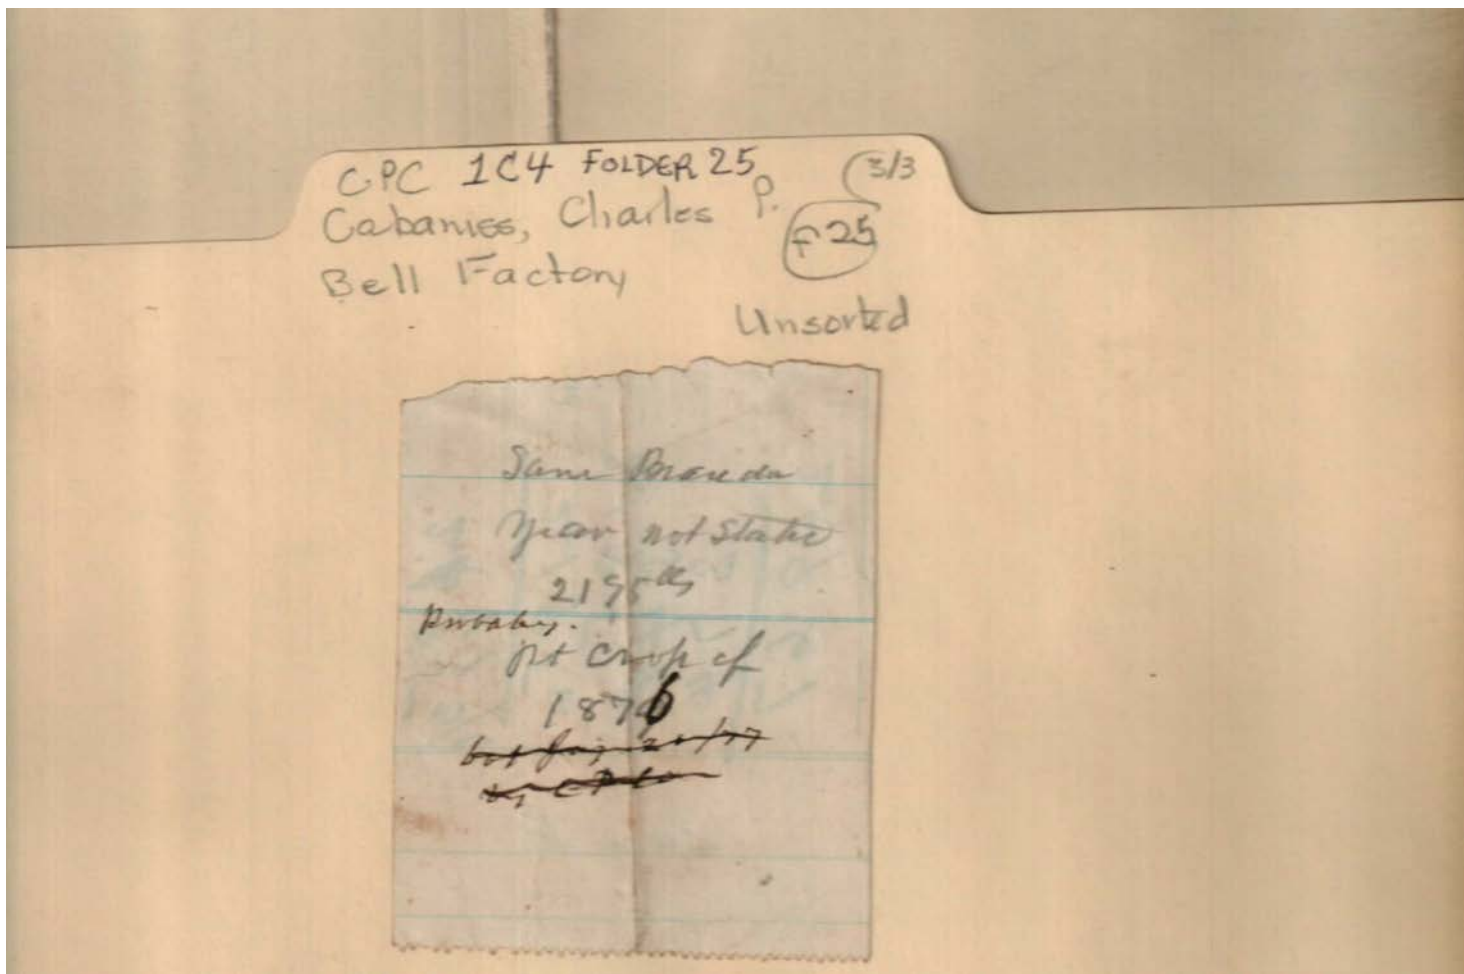 CPC 1C4 FOLDER 25 3/3
Cabaniss, Charles P. F 25
Bell Factory
Unsorted
Sam
Year not State
2195 lbs
Probably.
crop of
1876